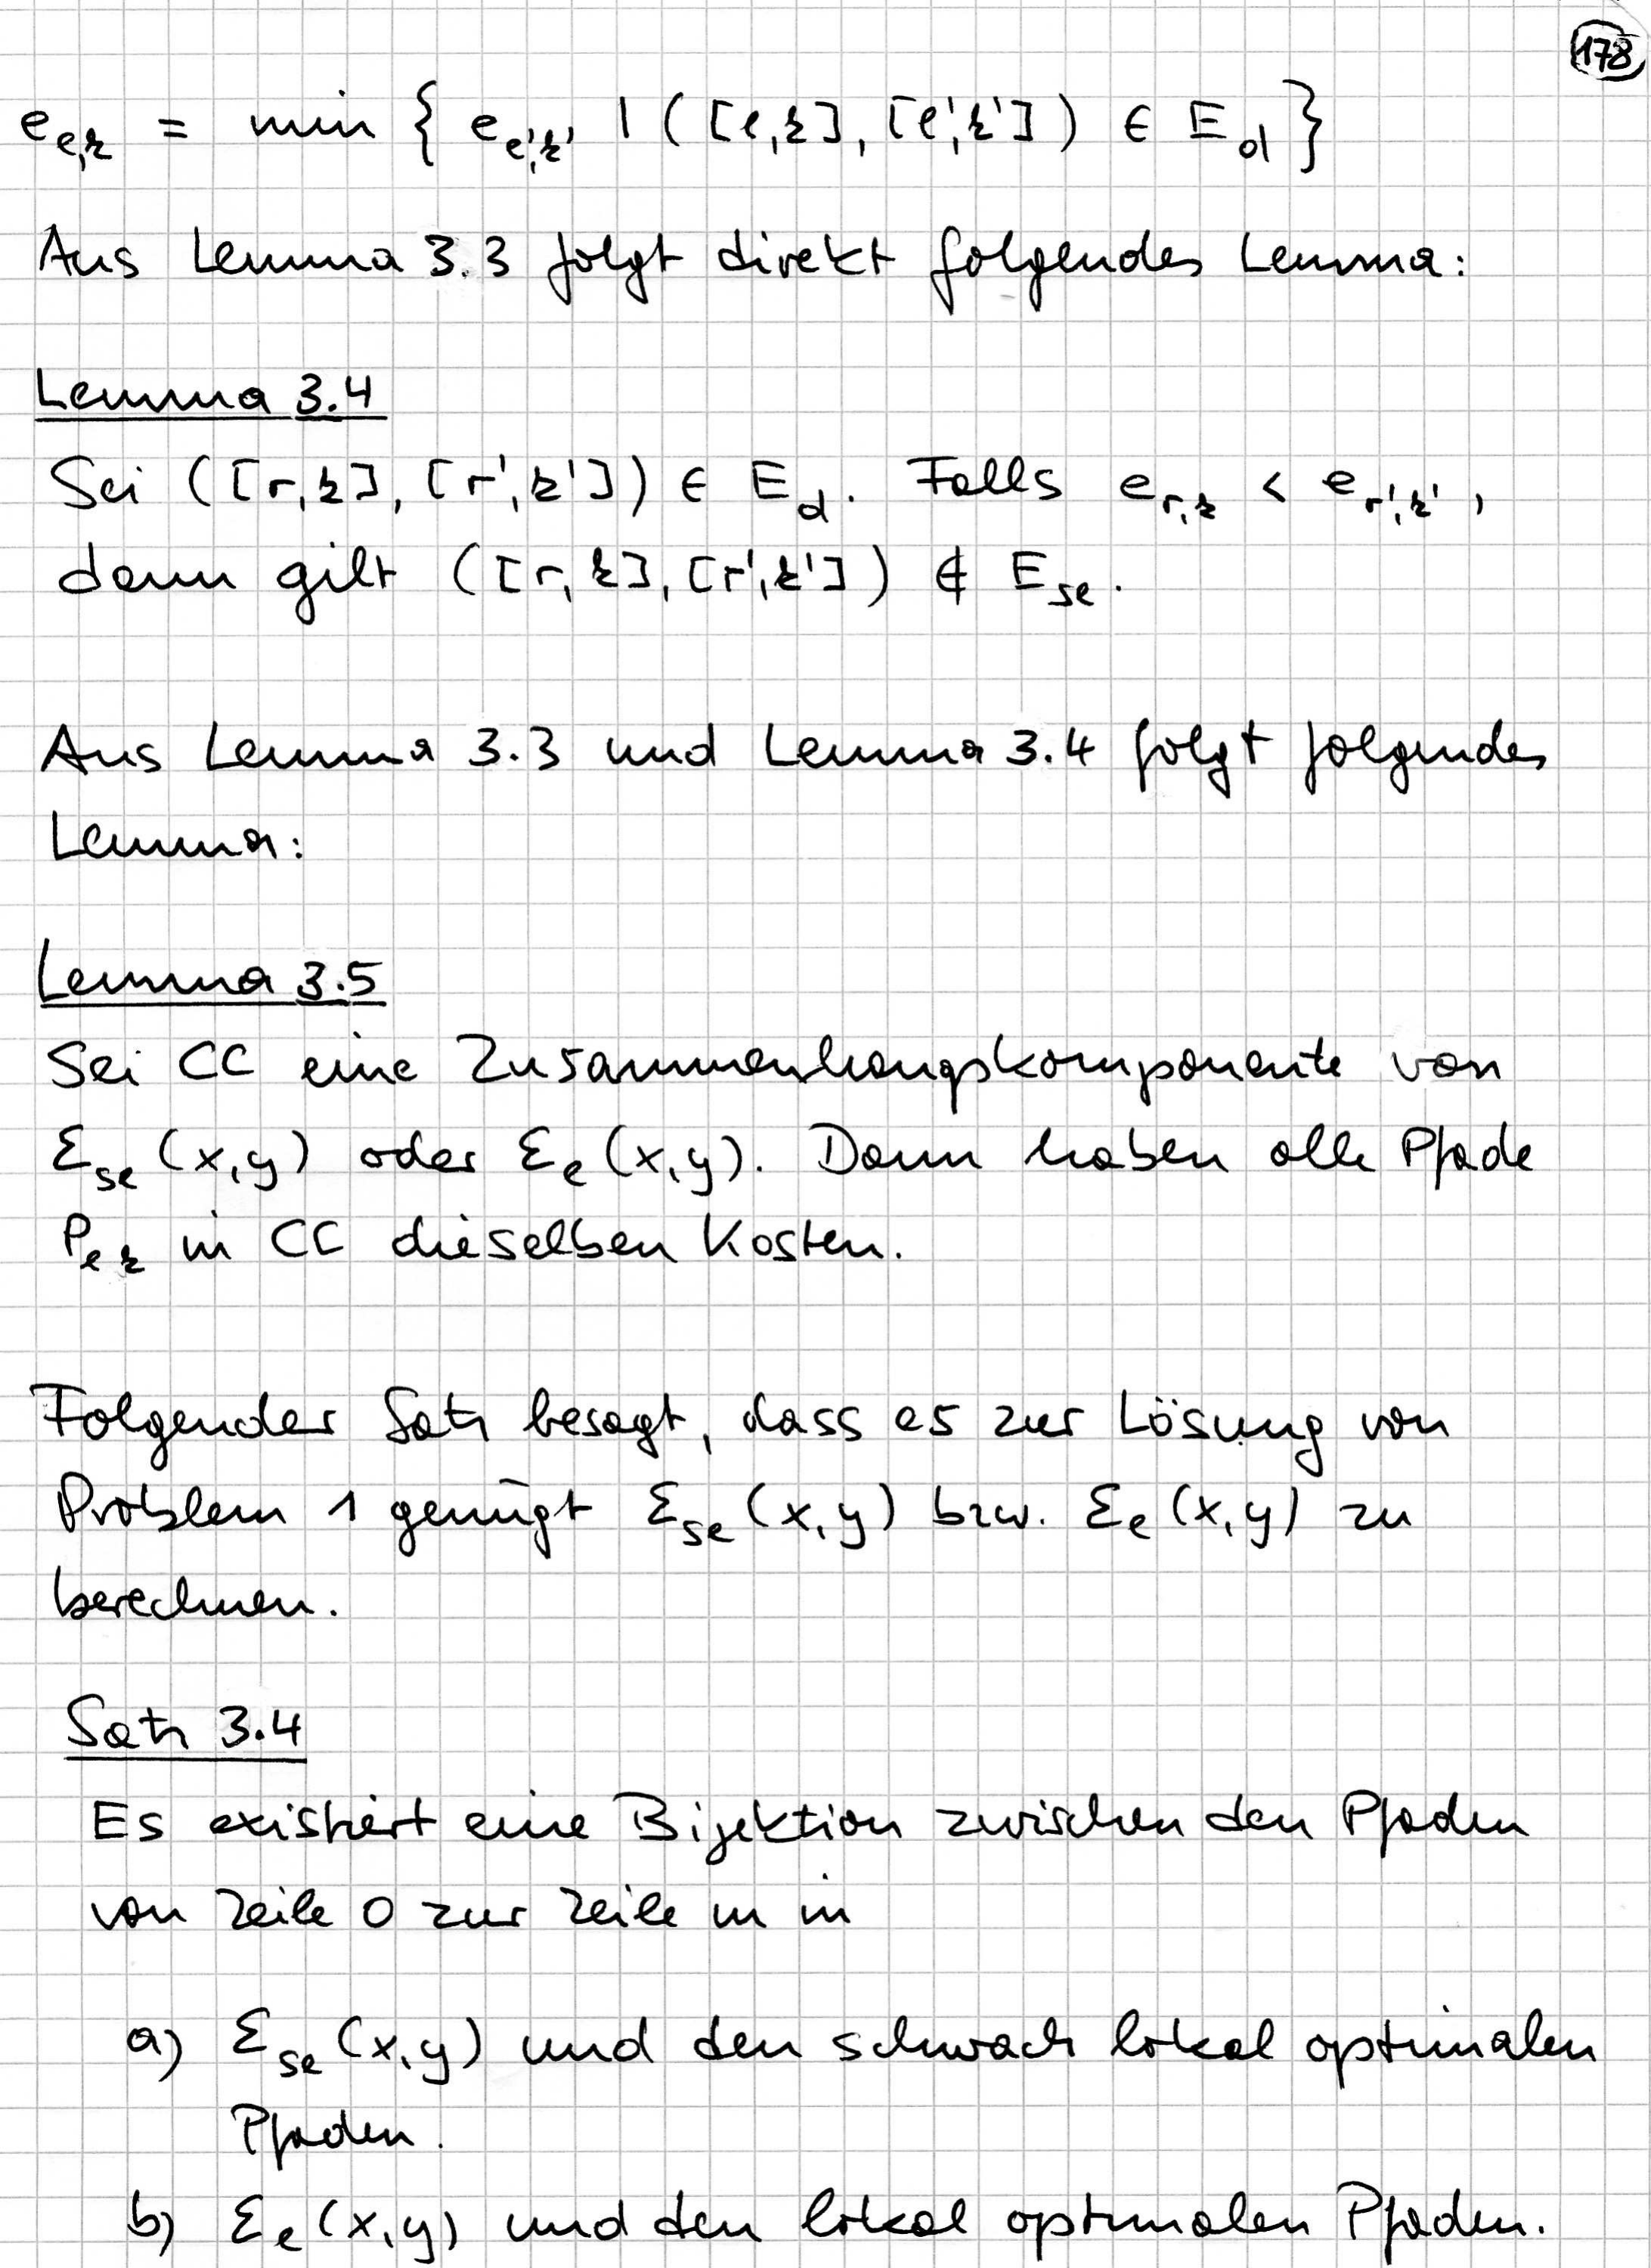 178
e_{ℓ,k} = min { e_{ℓ',k'} | ([ℓ,k], [ℓ',k']) ∈ E_d }
Aus Lemma 3.3 folgt direkt folgendes Lemma:
Lemma 3.4
Sei ([r,k], [r',k']) ∈ E_d. Falls e_{r,k} < e_{r',k'},
dann gilt ([r,k], [r',k']) ∉ E_{se}.
Aus Lemma 3.3 und Lemma 3.4 folgt folgendes
Lemma:
Lemma 3.5
Sei CC eine Zusammenhangskomponente von
Ɛ_{se}(x,y) oder Ɛ_e(x,y). Dann haben alle Pfade
P_{ℓk} in CC dieselben Kosten.
Folgender Satz besagt, dass es zur Lösung von
Problem 1 genügt Ɛ_{se}(x,y) bzw. Ɛ_e(x,y) zu
berechnen.
Satz 3.4
Es existiert eine Bijektion zwischen den Pfaden
von Zeile 0 zur Zeile m in
a) Ɛ_{se}(x,y) und den schwach lokal optimalen
Pfaden.
b) Ɛ_e(x,y) und den lokal optimalen Pfaden.